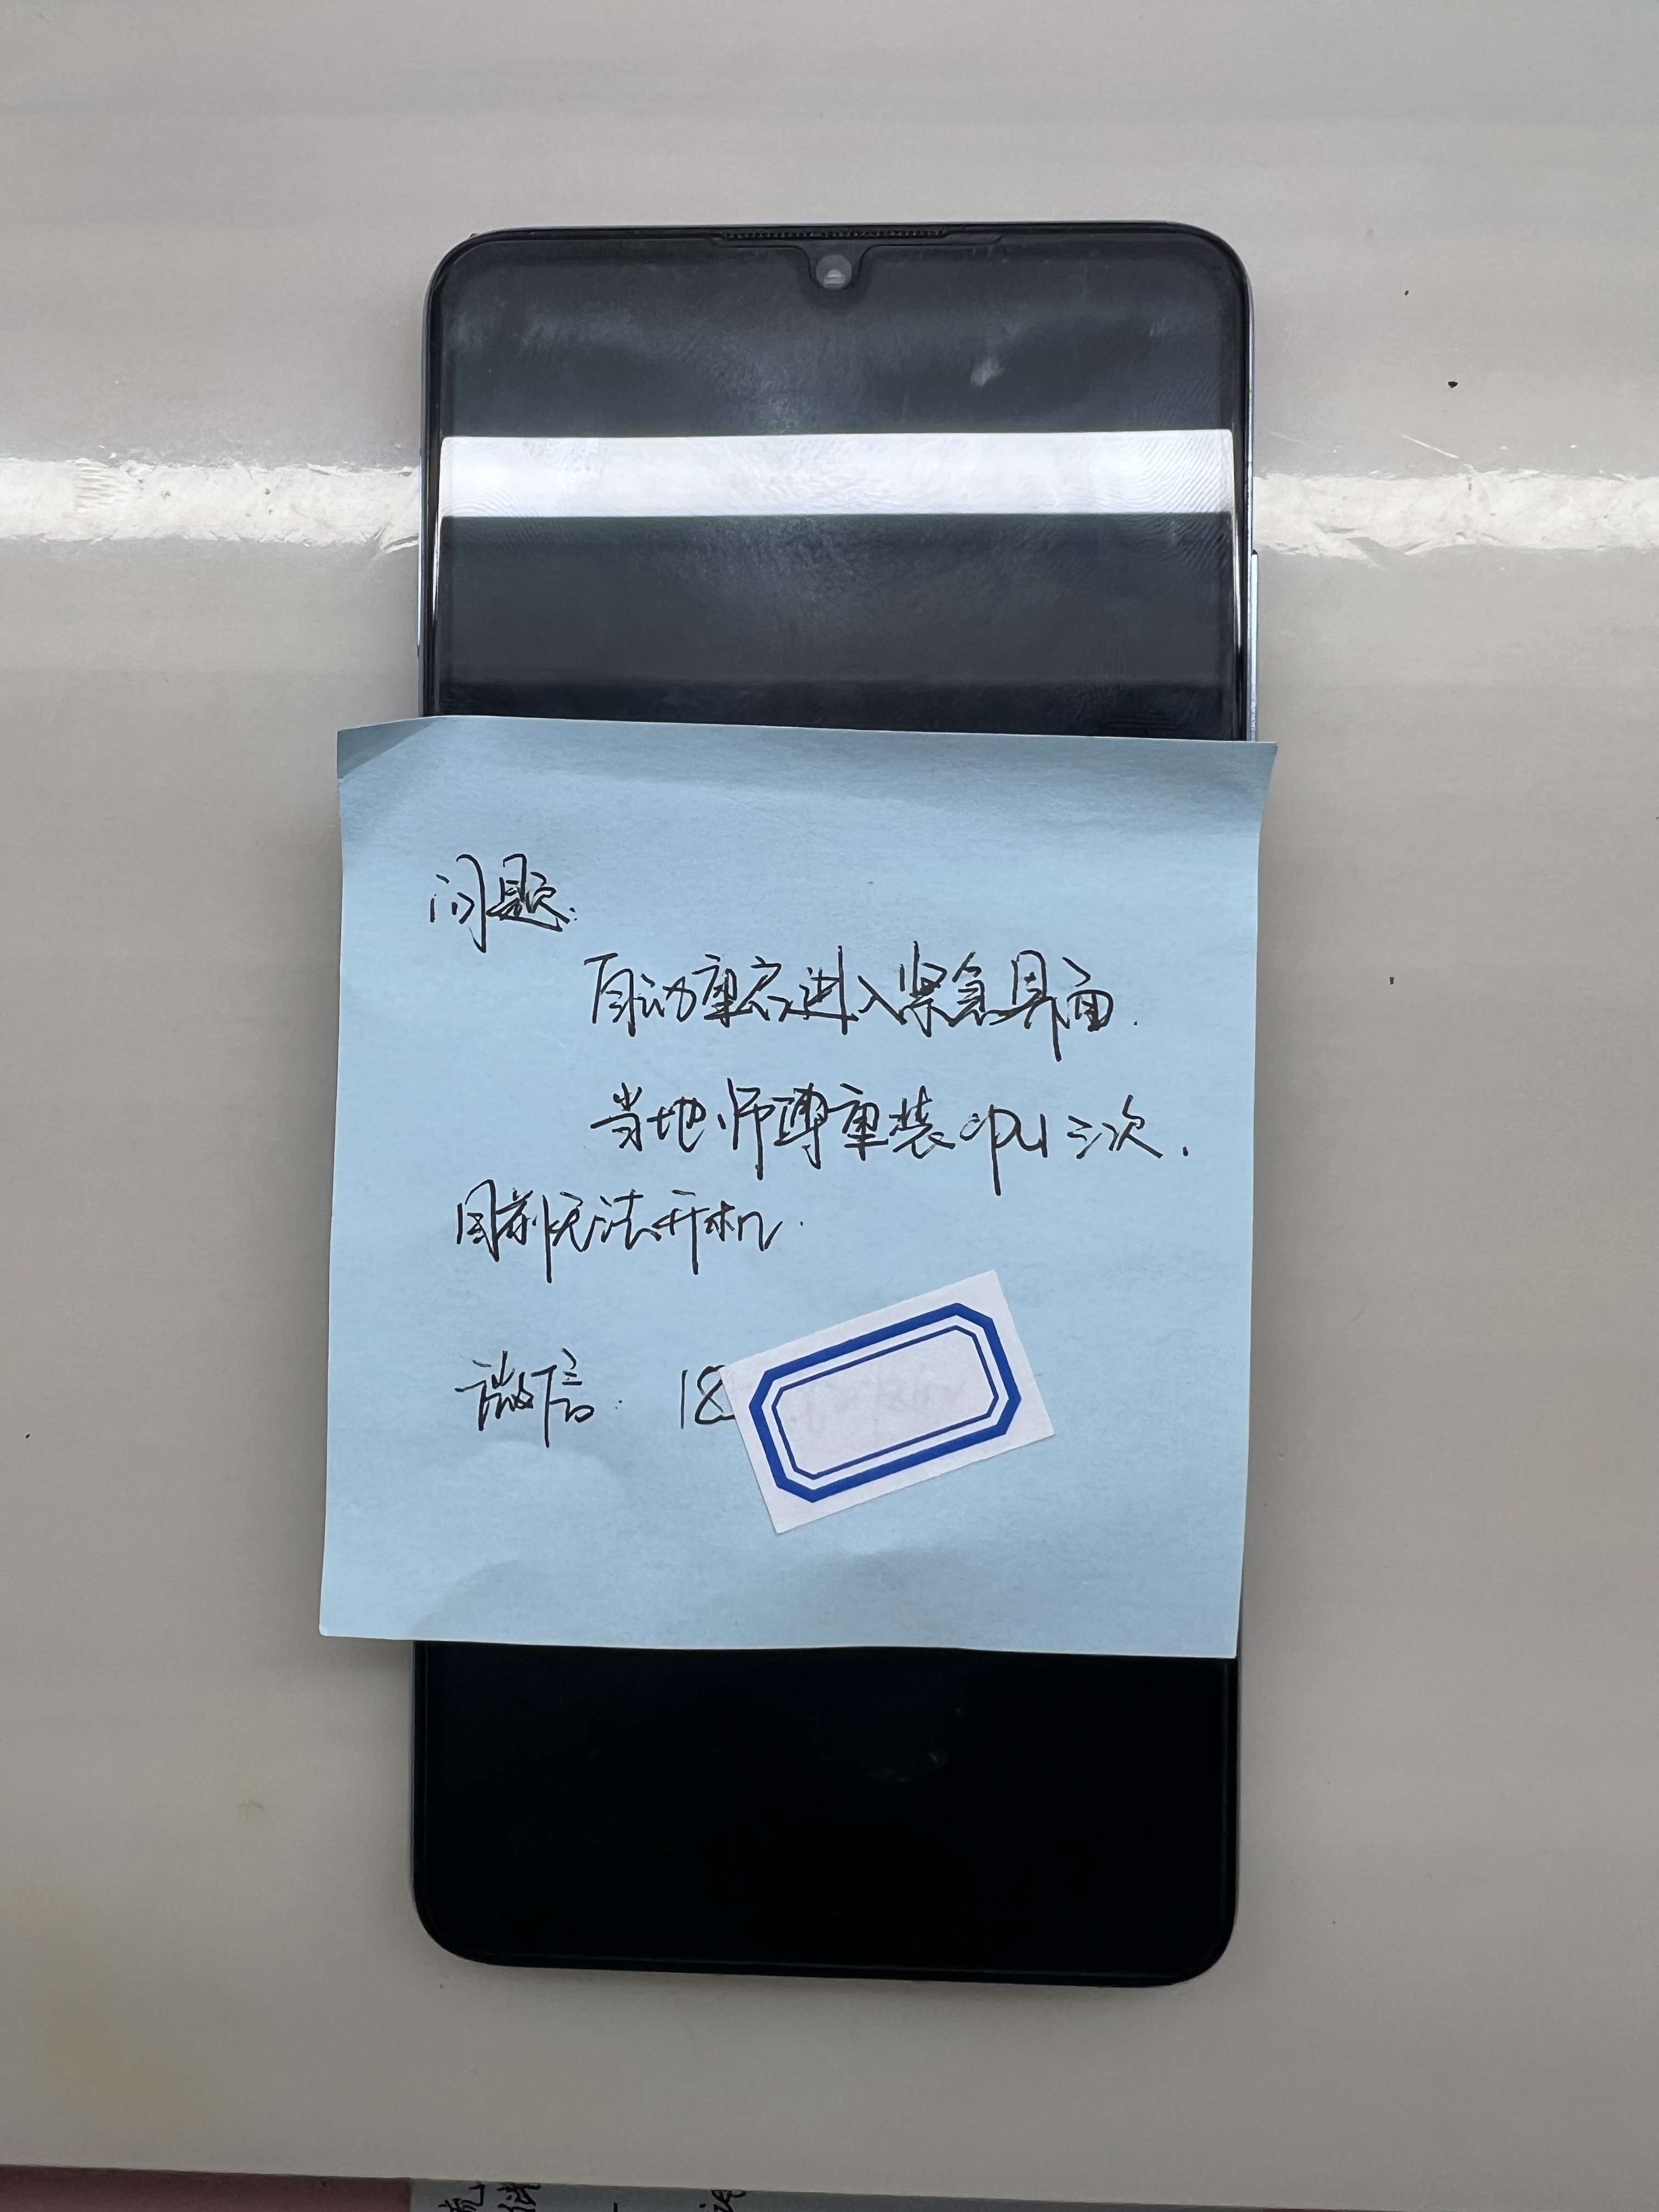 问题:
自动重启进入紧急界面.
当地师傅重装cpu三次.
目前无法开机.
微信: 18